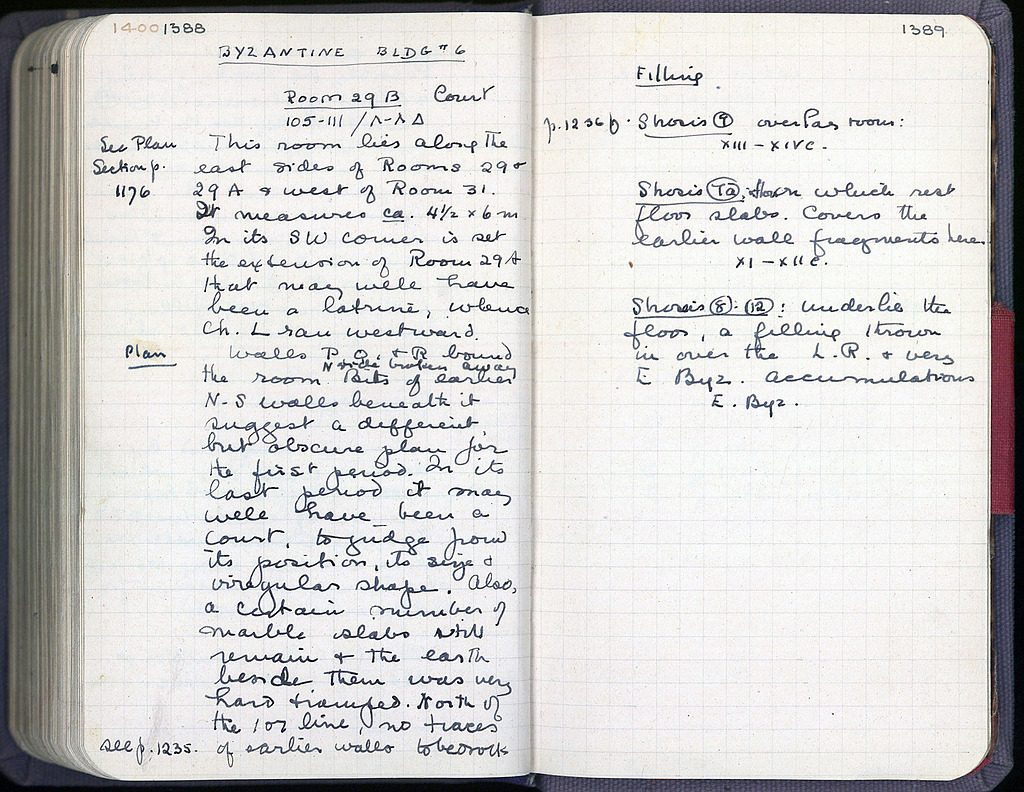 1400 1388
BYZANTINE BLDG # 6
Room 29 B Court
105-111 / Λ-ΛΔ
See Plan
Section p.
1176
This room lies along the
east sides of Rooms 29 &
29 A & west of Room 31.
It measures ca. 4½ x 6 m
In its SW corner is set
the extension of Room 29A
that may well have
been a latrine, whence
Ch. L ran westward.
Plan
Walls P, Q, & R bound
N side broken away
the room. Bits of earlier
N-S walls beneath it
suggest a different,
but obscure plan for
the first period. In its
last period it may
well have been a
court, to judge from
its position, its size &
irregular shape. Also,
a certain number of
marble slabs still
remain & the earth
beside them was very
hard tramped. North of
the 107 line, no traces
see p. 1235.
of earlier walls to bedrock
1389
Filling
p. 1236 f. Shosis 9 overlay room:
XIII - XIV c.
Shosis 7a, on which rest
floor slabs. Covers the
earlier wall fragments here.
XI - XII c.
Shosis 8 - 12 : underlie the
floor, a filling thrown
in over the L.R. & very
E Byz. accumulations
E. Byz.